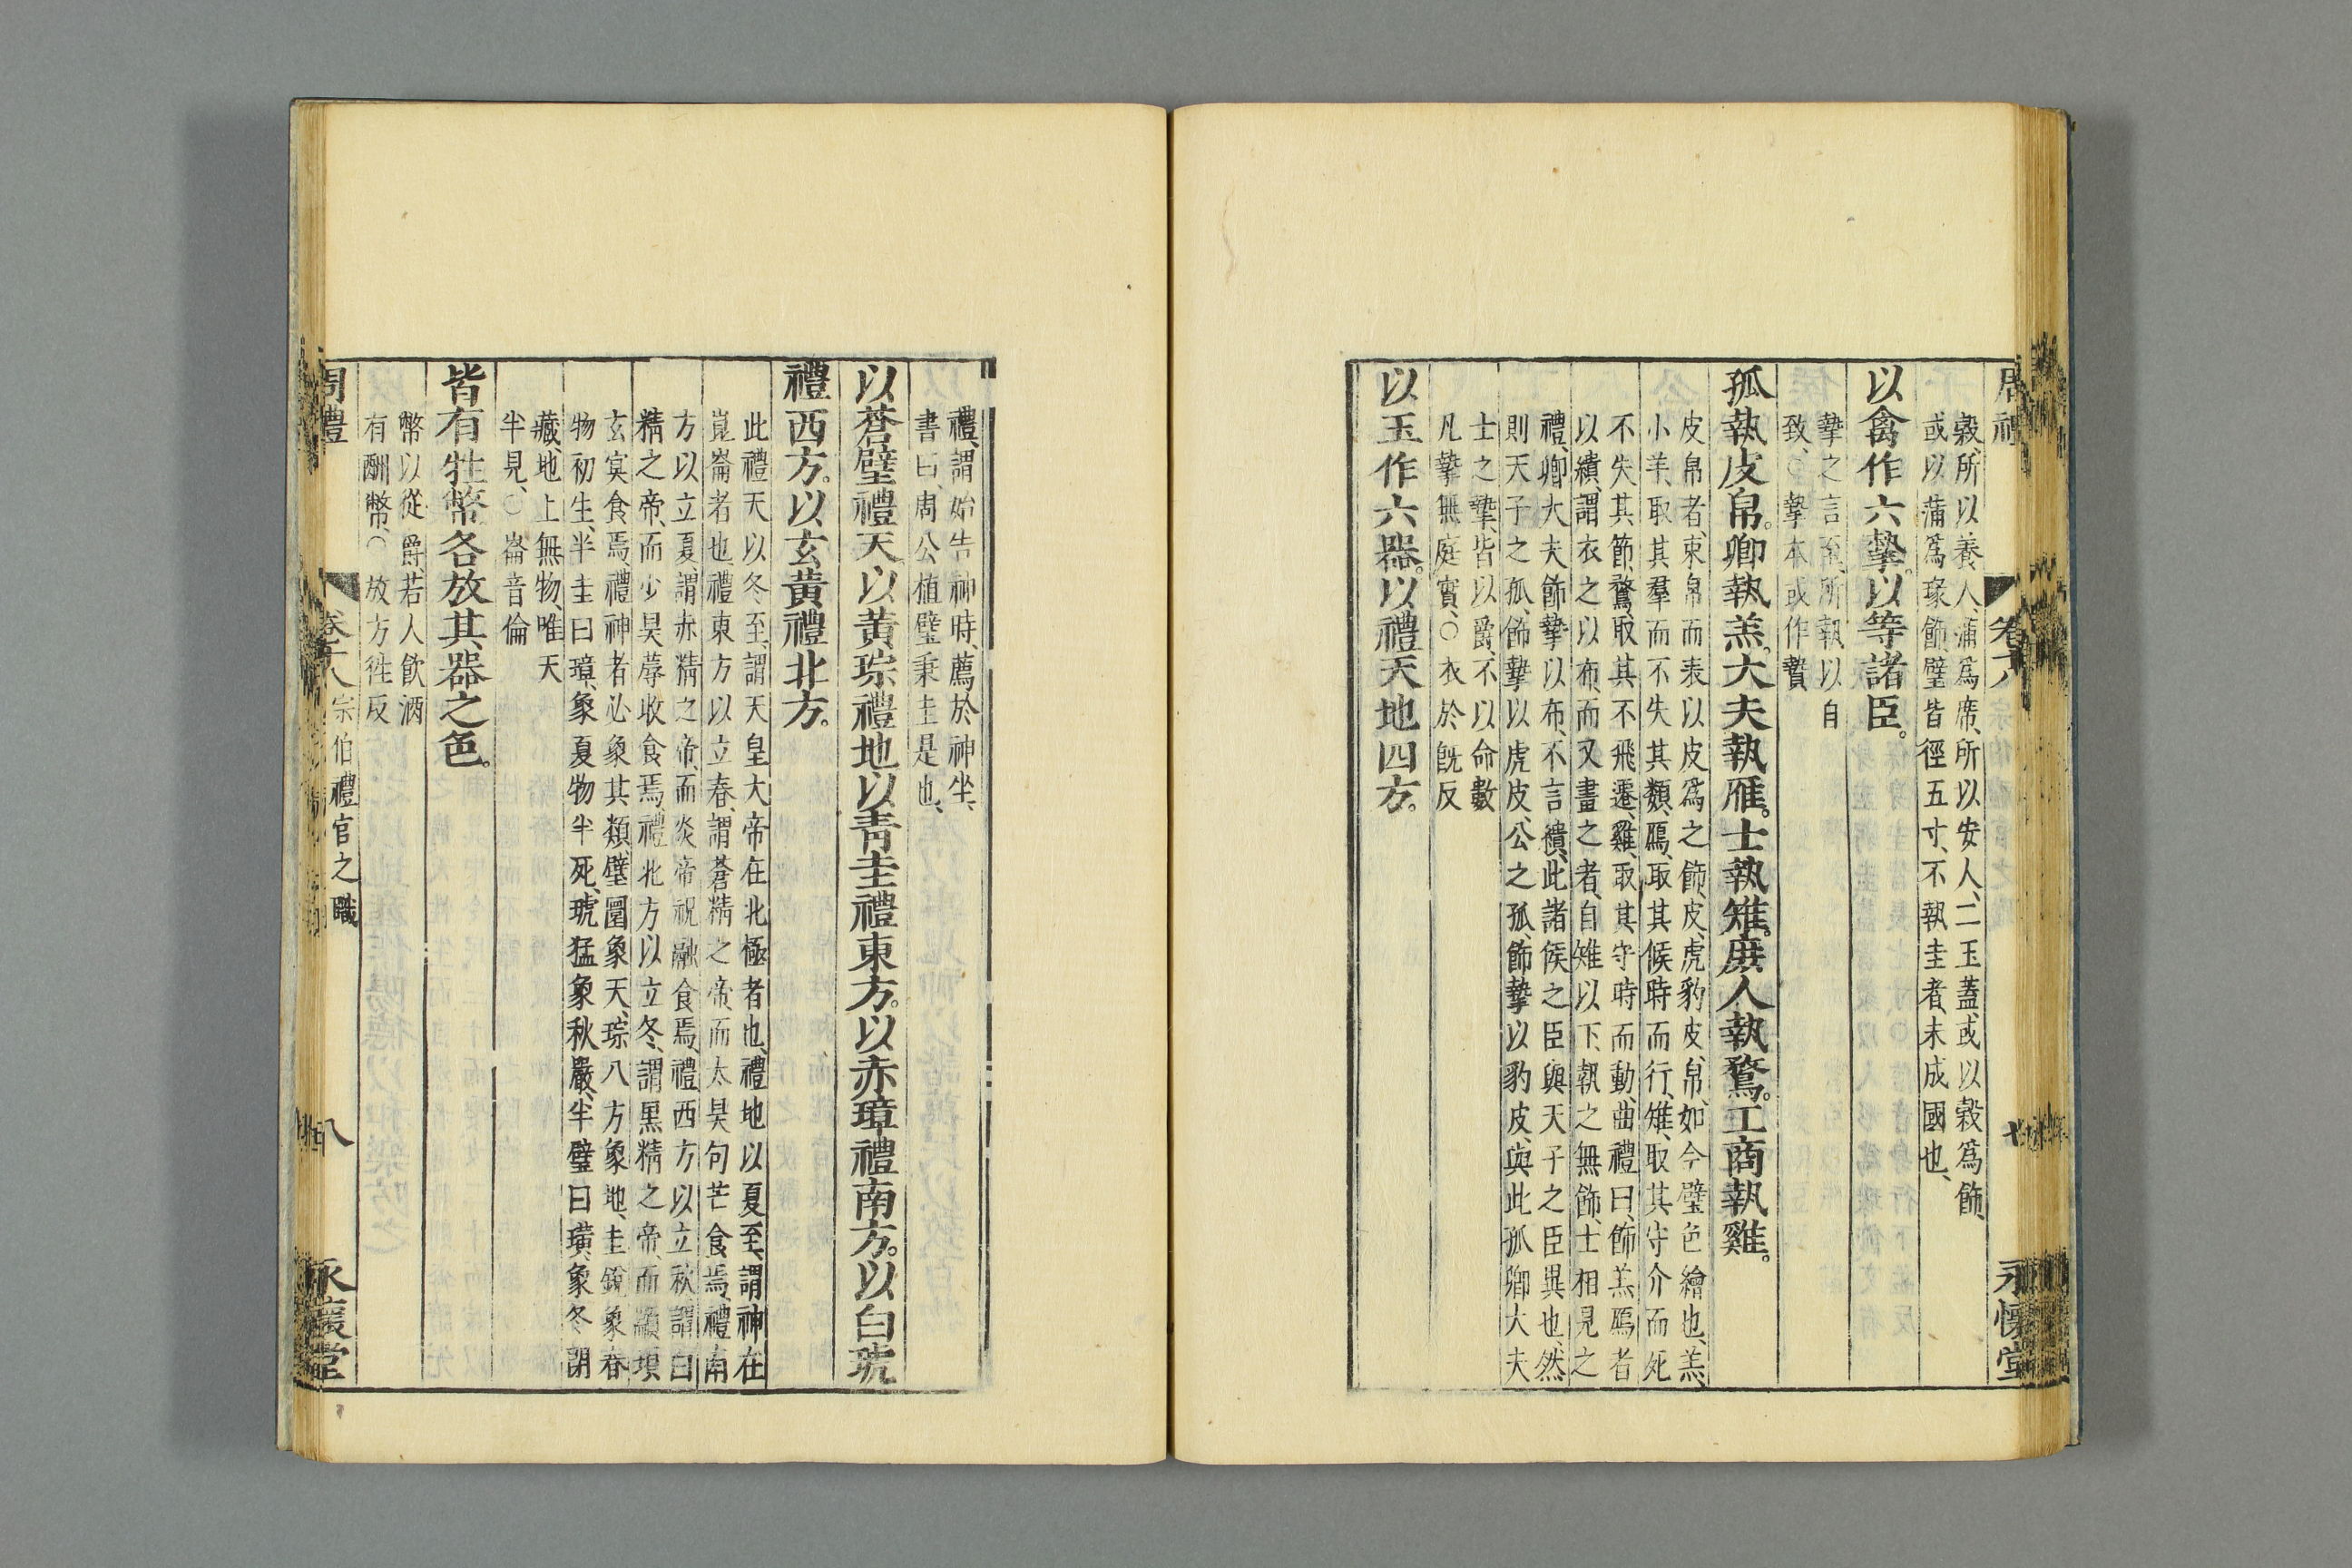 周禮 卷六 七 永懷堂
穀、所以養人、蒲爲席、所以安人、二玉蓋、或以穀爲飾、
或以蒲爲瑑飾、璧皆徑五寸、不執圭者、未成國也、
以禽作六摯。以等諸臣。
摯之言至、所執以自
致、○摯本或作贄
孤執皮帛。卿執羔。大夫執雁。士執雉。庶人執鶩。工商執雞。
皮帛者、束帛而表以皮爲之飾、皮、虎豹皮、帛、如今璧色繒也、羔、
小羊、取其羣而不失其類、鴈、取其候時而行、雉、取其守介而死
不失其節、鶩、取其不飛遷、雞、取其守時而動、曲禮曰、飾羔鴈者
以繢、謂衣之以布、而又畫之者、自雉以下、執之無飾、士相見之
禮、卿大夫飾摯以布、不言繢、此諸侯之臣與天子之臣異也、然
則天子之孤、飾摯以虎皮、公之孤、飾摯以豹皮、與此孤卿大夫
士之摯、皆以爵、不以命數
凡摯無庭實、○衣於旣反
以玉作六器。以禮天地四方。
禮、謂始告神時、薦於神坐、
書曰、周公植璧秉圭是也、
以蒼璧禮天以黃琮禮地以青圭禮東方。以赤璋禮南方。以白琥
禮西方。以玄黃禮北方。
此禮天以冬至、謂天皇大帝在北極者也、禮地以夏至、謂神在
崑崙者也、禮東方以立春、謂蒼精之帝、而太昊句芒食焉、禮南
方以立夏、謂赤精之帝、而炎帝祝融食焉、禮西方以立秋、謂白
精之帝、而少昊蓐收食焉、禮北方以立冬、謂黑精之帝、而顓頊
玄冥食焉、禮神者必象其類、璧圜象天、琮八方象地、圭銳象春
物初生、半圭曰璋、象夏物半死、琥猛象秋嚴、半璧曰璜、象冬閉
藏、地上無物、唯天
半見、○崙音倫
皆有牲幣各放其器之色。
幣以從爵、若人飮酒
有酬幣、○放方徃反
周禮 宗伯禮官之職 八 永懷堂